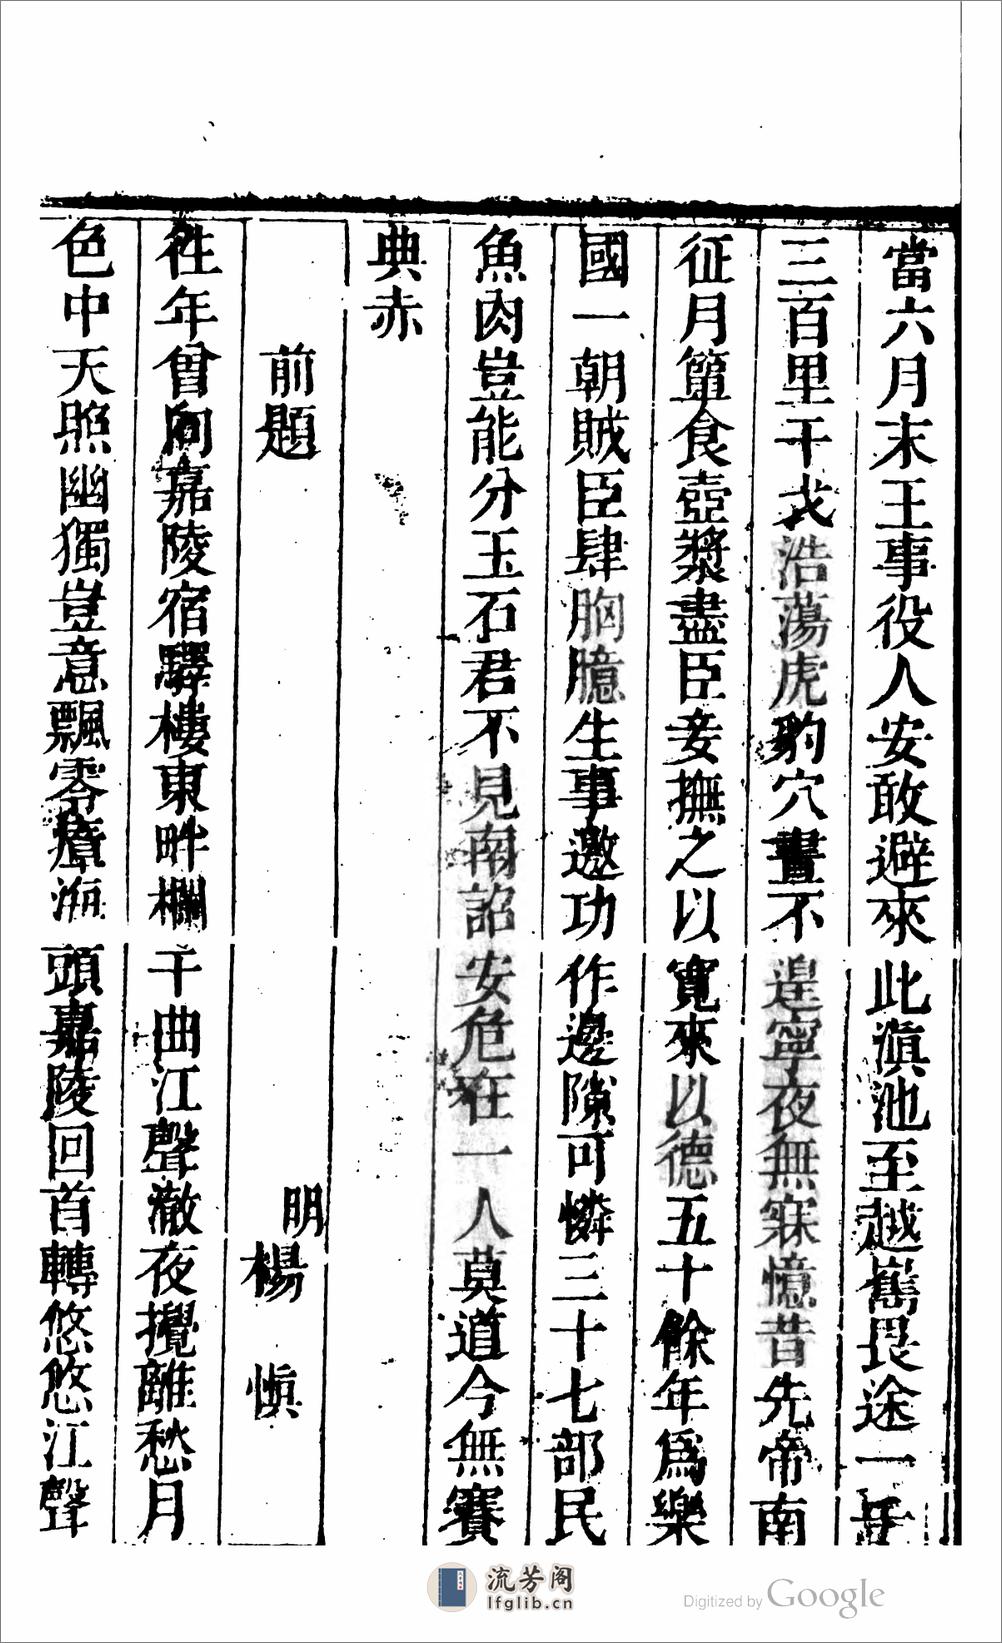 當六月末王事役人安敢避來此滇池至越嶲畏途一千
三百里干戈浩蕩虎豹穴晝不遑寧夜無寐憶昔先帝南
征月簞食壺漿盡臣妾撫之以寬來以德五十餘年爲樂
國一朝賊臣肆胸臆生事邀功作邊隙可憐三十七部民
魚肉豈能分玉石君不見南詔安危在一人莫道今無賽
典赤
前題 明 楊慎
往年曾向嘉陵宿驛樓東畔欄干曲江聲澈夜攪離愁月
色中天照幽獨豈意飄零瘴海頭嘉陵回首轉悠悠江聲
流芳阁
lfglib.cn
Digitized by Google